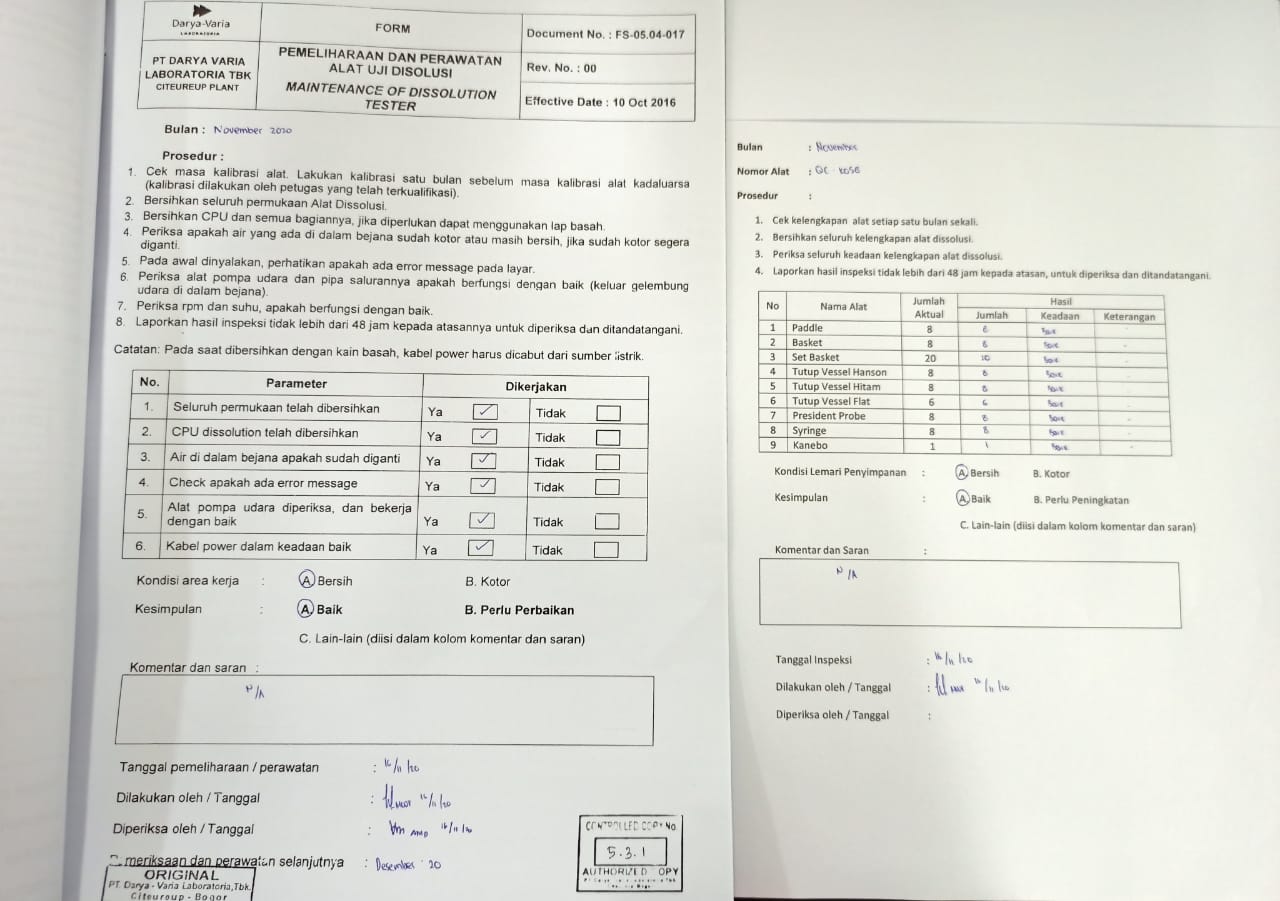 Darya-Varia
LABORATORIA
PT DARYA VARIA
LABORATORIA TBK
CITEUREUP PLANT
FORM
PEMELIHARAAN DAN PERAWATAN
ALAT UJI DISOLUSI
MAINTENANCE OF DISSOLUTION
TESTER
Document No. : FS-05.04-017
Rev. No. : 00
Effective Date : 10 Oct 2016
Bulan : November 2020
Prosedur :
1. Cek masa kalibrasi alat. Lakukan kalibrasi satu bulan sebelum masa kalibrasi alat kadaluarsa
(kalibrasi dilakukan oleh petugas yang telah terkualifikasi).
2. Bersihkan seluruh permukaan Alat Dissolusi.
3. Bersihkan CPU dan semua bagiannya, jika diperlukan dapat menggunakan lap basah.
4. Periksa apakah air yang ada di dalam bejana sudah kotor atau masih bersih, jika sudah kotor segera
diganti.
5. Pada awal dinyalakan, perhatikan apakah ada error message pada layar.
6. Periksa alat pompa udara dan pipa salurannya apakah berfungsi dengan baik (keluar gelembung
udara di dalam bejana).
7. Periksa rpm dan suhu, apakah berfungsi dengan baik.
8. Laporkan hasil inspeksi tidak lebih dari 48 jam kepada atasannya untuk diperiksa dan ditandatangani.
Catatan: Pada saat dibersihkan dengan kain basah, kabel power harus dicabut dari sumber listrik.
No. Parameter Dikerjakan
1. Seluruh permukaan telah dibersihkan Ya ✓ Tidak
2. CPU dissolution telah dibersihkan Ya ✓ Tidak
3. Air di dalam bejana apakah sudah diganti Ya ✓ Tidak
4. Check apakah ada error message Ya ✓ Tidak
5. Alat pompa udara diperiksa, dan bekerja
dengan baik Ya ✓ Tidak
6. Kabel power dalam keadaan baik Ya ✓ Tidak
Kondisi area kerja : A. Bersih B. Kotor
Kesimpulan : A. Baik B. Perlu Perbaikan
C. Lain-lain (diisi dalam kolom komentar dan saran)
Komentar dan saran :
N/A
Tanggal pemeliharaan / perawatan : 16/11/20
Dilakukan oleh / Tanggal : 16/11/20
Diperiksa oleh / Tanggal : 16/11/20
meriksaan dan perawatan selanjutnya : Desember '20
ORIGINAL
PT. Darya - Varia Laboratoria,Tbk.
Citeureup - Bogor
CONTROLLED COPY NO.
5.3.1
AUTHORIZED COPY
Bulan : November
Nomor Alat : QC
Prosedur :
1. Cek kelengkapan alat setiap satu bulan sekali.
2. Bersihkan seluruh kelengkapan alat dissolusi.
3. Periksa seluruh keadaan kelengkapan alat dissolusi.
4. Laporkan hasil inspeksi tidak lebih dari 48 jam kepada atasan, untuk diperiksa dan ditandatangani.
No Nama Alat Jumlah Aktual Hasil
Jumlah Keadaan Keterangan
1 Paddle 8 8 Baik -
2 Basket 8 8 Baik -
3 Set Basket 20 20 Baik -
4 Tutup Vessel Hanson 8 8 Baik -
5 Tutup Vessel Hitam 8 8 Baik -
6 Tutup Vessel Flat 6 6 Baik -
7 President Probe 8 8 Baik -
8 Syringe 8 8 Baik -
9 Kanebo 1 1 Baik -
Kondisi Lemari Penyimpanan : A. Bersih B. Kotor
Kesimpulan : A. Baik B. Perlu Peningkatan
C. Lain-lain (diisi dalam kolom komentar dan saran)
Komentar dan Saran :
N/A
Tanggal Inspeksi : 16/11/20
Dilakukan oleh / Tanggal : 16/11/20
Diperiksa oleh / Tanggal :